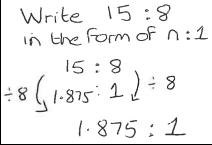 Write 15 : 8
in the form of n : 1
15 : 8
÷8 ( 1.875 : 1 ) ÷ 8
1.875 : 1